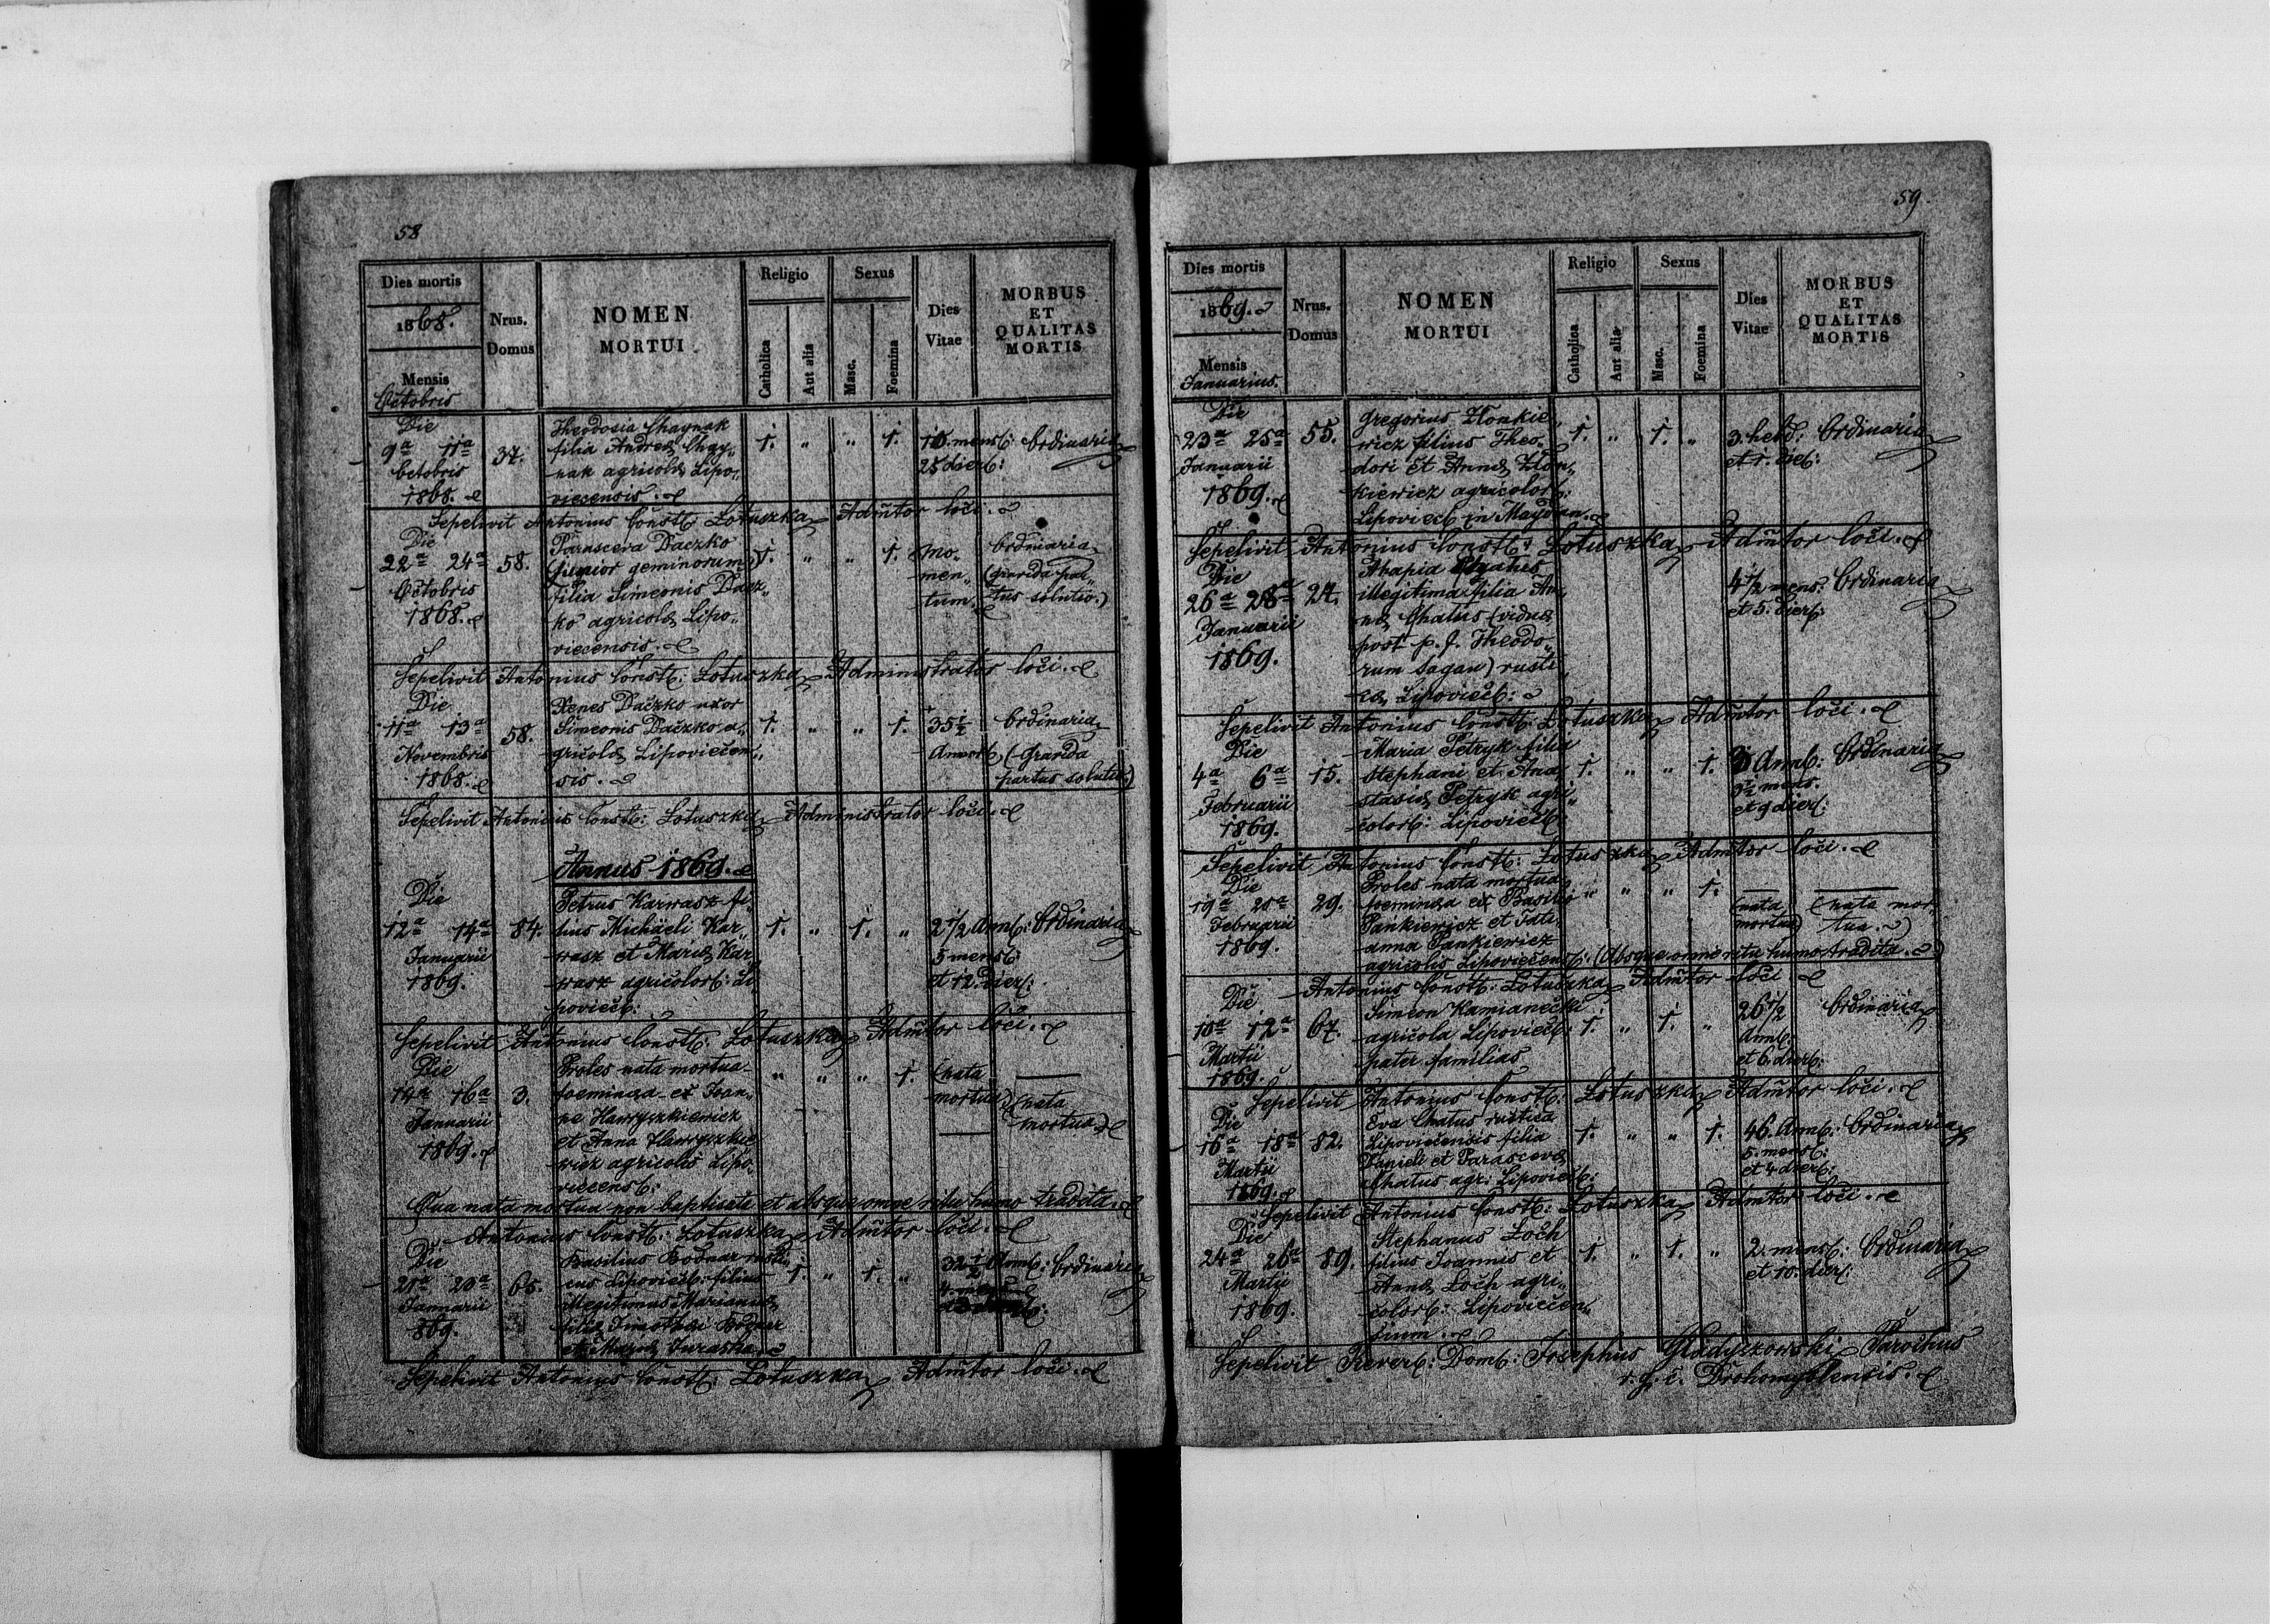 58
Dies mortis
1868.
Mensis
Octobris
Nrus.
Domus
NOMEN
MORTUI
Religio
Catholica
Aut alia
Sexus
Masc.
Foemina
Dies
Vitae
MORBUS
ET
QUALITAS
MORTIS
Die
9ª 11ª
Octobris
1868.
37.
Theodosia Chaynak
filia Andreæ Chay„
nak agricolæ Lipo„
viecensis.
1. „ „ 1.
mens:
25 dier:
Ordinaria
Sepelivit Antonius Const: Lotuszka Admtor loci.
Die
22ª 24ª
Octobris
1868.
58.
Parasceva Daczko
(junior geminorum)
filia Simeonis Dacz„
ko agricolæ Lipo„
viecensis.
1. „ „ 1.
Mo„
men„
tum.
Ordinaria
(gravida par„
tus solutio.)
Sepelivit Antonius Const: Lotuszka Administrator loci.
Die
11ª 13ª
Novembris
1868.
58.
Xenes Daczko uxor
Simeonis Daczko a„
gricolæ Lipoviecen„
sis.
1. „ „ 1.
35½
Annor:
Ordinaria
(Gravida
partus solutio)
Sepelivit Antonius Const: Lotuszka Administrator loci.
Annus 1869.
Die
12ª 14ª
Januarii
1869.
84.
Petrus Karwasz fi„
lius Michaeli Kar„
wasz et Mariæ Kar„
wasz agricolor: Li„
poviec:
1. „ 1. „
2 1/2 Ann:
5 mens:
et 12. dier:
Ordinaria
Sepelivit Antonius Const: Lotuszka Admtor loci.
Die
14ª 16ª
Januarii
1869.
3.
Proles nata mortua
foeminea ex Joan„
ne Hawryszkiewicz
et Anna Hawryszkie„
wicz agricolis Lipo„
viecens:
„ „ „ 1.
(nata
mortua)
(nata
mortua)
Qua nata mortua non baptisata et absque omne ritu humo tradita.
Antonius Const: Lotuszka Admtor loci.
Die
Januarii
869.
65.
Basilius Bodnar rusti„
cus Lipoviec: filius
illegitimus Marianæ
filiæ Timothei Bodnar
et Mariæ Juraszka.
1. „ 1. „
32½ Ann:
Ordinaria
Sepelivit Antonius Const: Lotuszka Admtor loci.
59.
Dies mortis
1869.
Mensis
Januarius.
Nrus.
Domus
NOMEN
MORTUI
Religio
Catholica
Aut alia
Sexus
Masc.
Foemina
Dies
Vitae
MORBUS
ET
QUALITAS
MORTIS
Die
23ª 25ª
Januarii
1869.
55.
Gregorius Zlonkie„
wicz filius Theo„
dori et Annæ Zlon„
kiewicz agricolor:
Lipoviec: in Maydan.
1. „ 1. „
3. hebd:
et 1. die:
Ordinaria
Sepelivit Antonius Const: Lotuszka Admtor loci.
Die
26ª 28ª
Januarii
1869.
24.
Ahapia Chatus
illegitima filia An„
næ Chatus (viduæ
post p. d. Theodo„
rum Sagan) rusti„
cæ Lipoviec:
4 1/2 mens:
et 5. dier:
Ordinaria
Sepelivit Antonius Const: Lotuszka Admtor loci.
Die
4ª 6ª
Februarii
1869.
15.
Maria Petryk filia
Stephani et Ana„
stasiæ Petryk agri„
color: Lipoviec:
1. „ „ 1.
3 Ann:
mens.
et 9 dier:
Ordinaria
Sepelivit Antonius Const: Lotuszka Admtor loci.
Die
19ª 20ª
Februarii
1869.
29.
Proles nata mortua
foeminea ex Basilio
Pankiewicz et Tati„
anna Pankiewicz
agricolis Lipoviecens: (Absque omne ritu humo tradita.)
„ „ „ 1.
(nata
mortua)
(nata mor„
tua.)
Antonius Const: Lotuszka Admtor loci
Die
10ª 12ª
Martii
1869.
67.
Simeon Kamianecki
agricola Lipoviec:
pater familias
1. „ 1. „
26 1/2
Ann:
et 6. dier:
Ordinaria
Sepelivit Antonius Const: Lotuszka Admtor loci.
Die
16ª 18ª
Martii
1869.
82.
Eva Chatus rustica
Lipoviecensis filia
Danieli et Parascevæ
Chatus agr: Lipoviec:
1. „ „ 1.
46. Ann:
5. mens:
et 4 dier:
Ordinaria
Sepelivit Antonius Const: Lotuszka Admtor loci.
Die
24ª 26ª
Martii
1869.
89.
Stephanus Loch
filius Joannis et
Annæ Loch agri„
color: Lipoviecen„
sium.
1. „ 1. „
2. mens:
et 10. dier:
Ordinaria
Sepelivit Rever: Dom: Josephus Gladyszowski Parochus
r. g. c. Drohomyslensis.